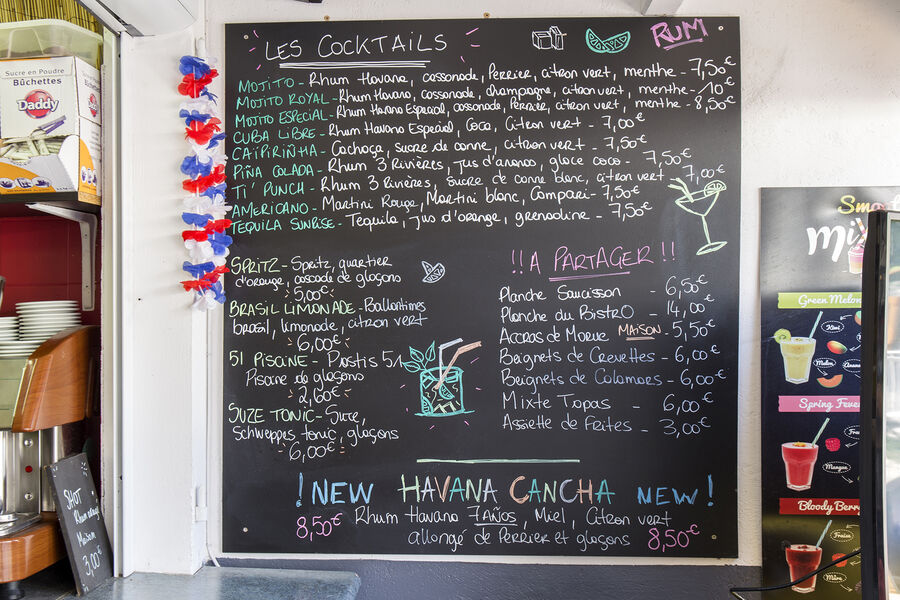 LES COCKTAILS
RUM
MOJITO - Rhum Havana, cassonade, Perrier, citron vert, menthe - 7,50€
MOJITO ROYAL - Rhum Havana, cassonade, champagne, citron vert, menthe - 10€
MOJITO ESPECIAL - Rhum Havana Especial, cassonade, Perrier, citron vert, menthe - 8,50€
CUBA LIBRE - Rhum Havana Especial, Coca, Citron vert - 7,00€
CAÏPIRIÑHA - Cachaça, sucre de canne, citron vert - 7,50€
PIÑA COLADA - Rhum 3 Rivières, jus d'ananas, glace coco - 7,50€
TI' PUNCH - Rhum 3 Rivières, Sucre de canne blanc, citron vert - 7,00€
AMERICANO - Martini Rouge, Martini blanc, Campari - 7,50€
TEQUILA SUNRISE - Tequila, Jus d'orange, grenadine - 7,50€
SPRITZ - Spritz, quartier
d'orange, cascade de glaçons
5,00€
BRASIL LIMONADE - Ballantines
brasil, limonade, citron vert
6,00€
51 PISCINE - Pastis 51
Piscine de glaçons
2,60€
SUZE TONIC - Suze,
Schweppes tonic, glaçons
6,00€
!! A PARTAGER !!
Planche Saucisson - 6,50€
Planche du BistrO - 14,00€
Accras de Morue MAISON - 5,50€
Baignets de Crevettes - 6,00€
Baignets de Calamars - 6,00€
Mixte Tapas - 6,00€
Assiette de Frites - 3,00€
! NEW HAVANA CANCHA NEW !
8,50€ Rhum Havana 7 AÑOS, Miel, Citron vert
allongé de Perrier et glaçons 8,50€
Sucre en Poudre
Bûchettes
Daddy
Daddy
SHOT
Rhum
Maison
3,00€
Green Melon
Kiwi
Melon
Spring Fever
Fraise
Mangue
Bloody Berr
Mûre